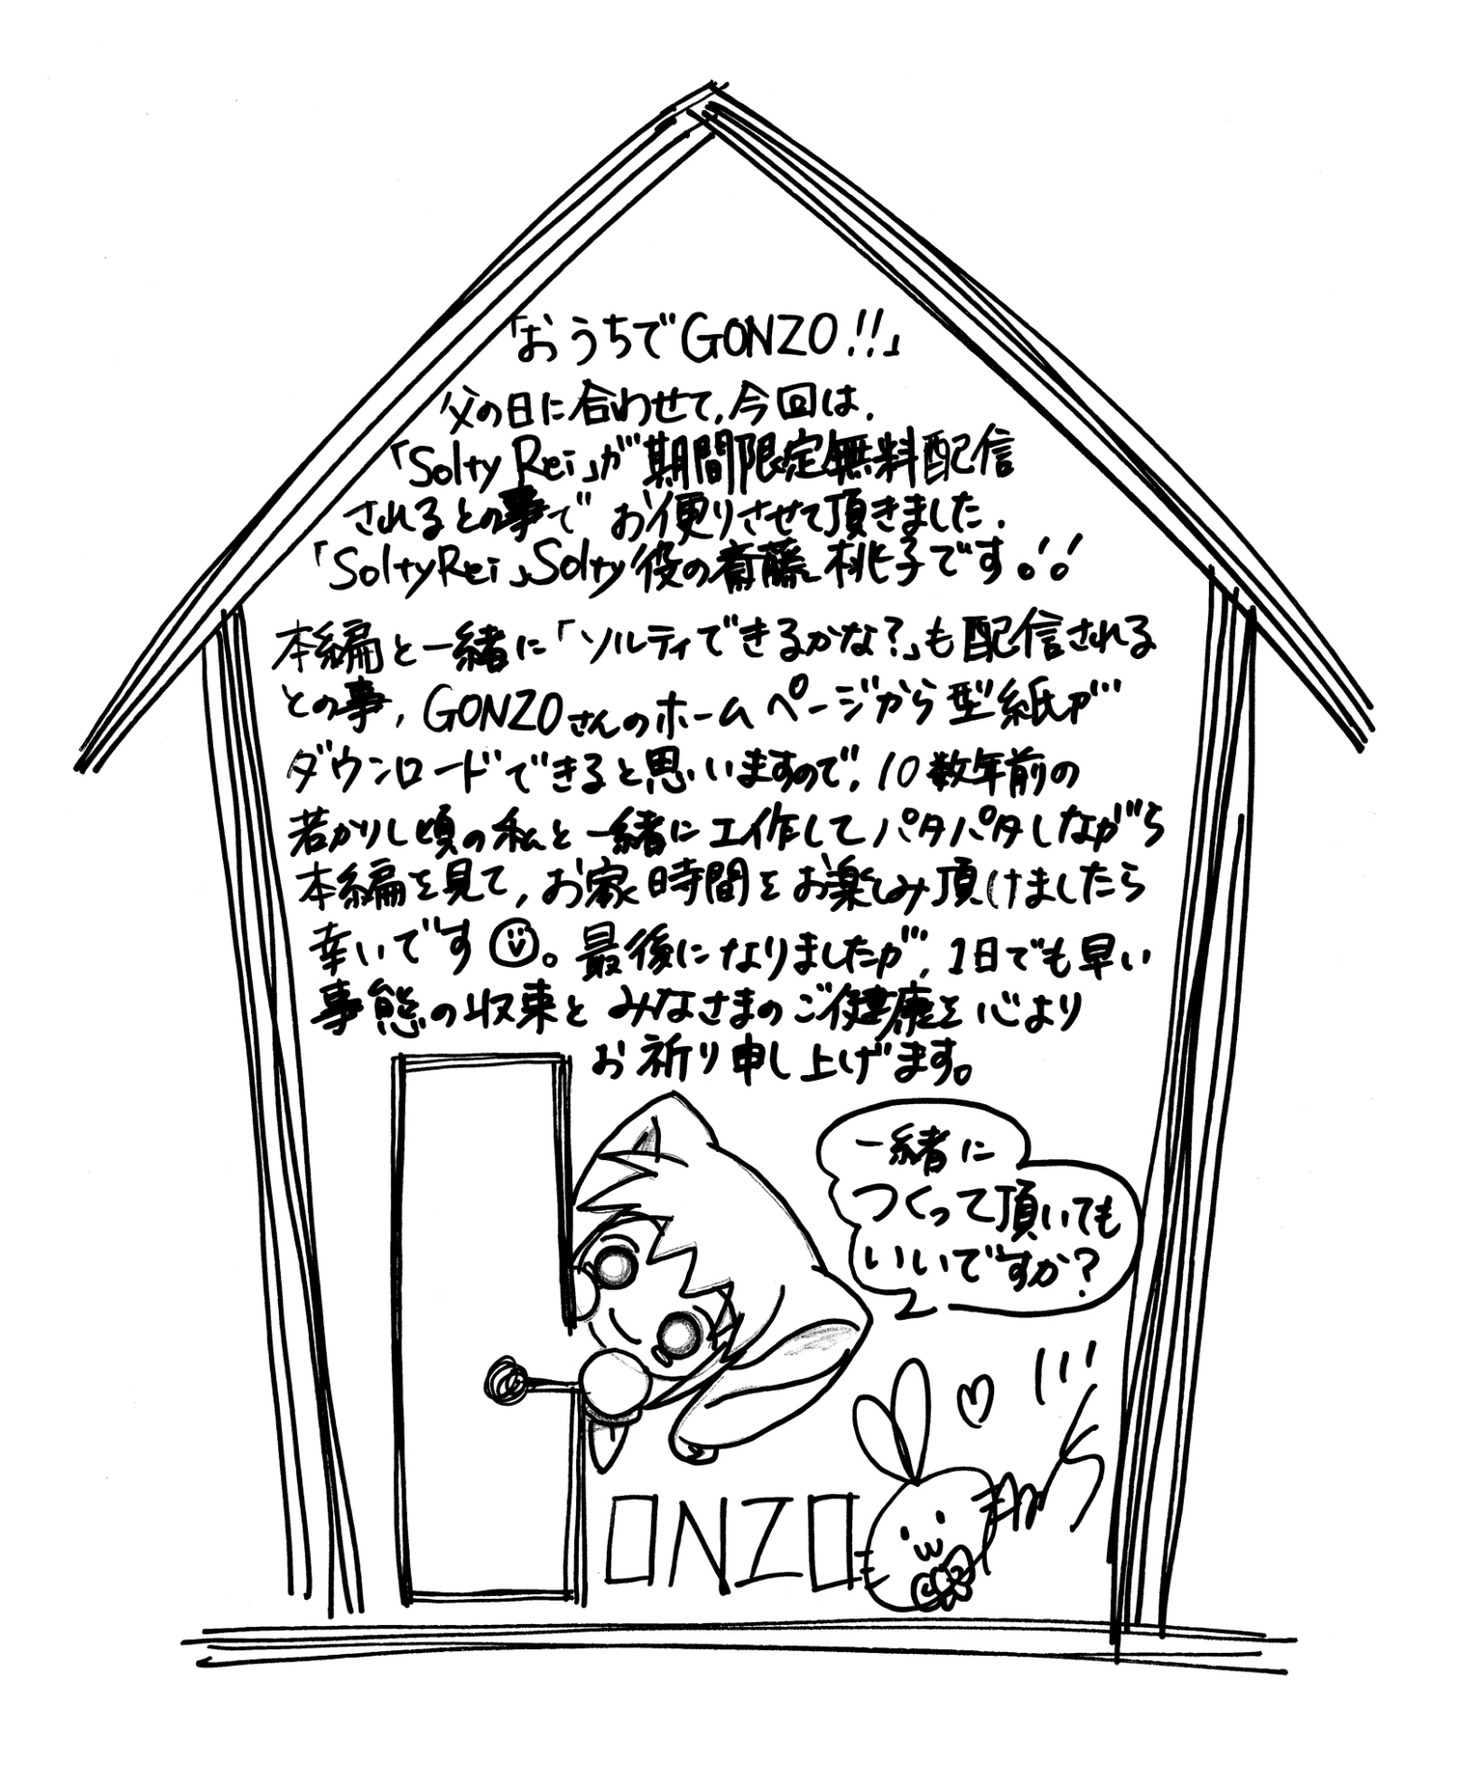 「おうちでGONZO!!」
父の日に合わせて、今回は、
「SoltyRei」が期間限定無料配信
されるとの事でお便りさせて頂きました.
「SoltyRei」Solty役の斎藤桃子です!!
本編と一緒に「ソルティできるかな?」も配信される
との事、GONZOさんのホームページから型紙が
ダウンロードできると思いますので、10数年前の
若かりし頃の私と一緒に工作してパタパタしながら
本編を見て、お家時間をお楽しみ頂けましたら
幸いです。最後になりましたが、1日でも早い
事態の収束とみなさまのご健康を心より
お祈り申し上げます。
一緒に
つくって頂いても
いいですか?
ONZO